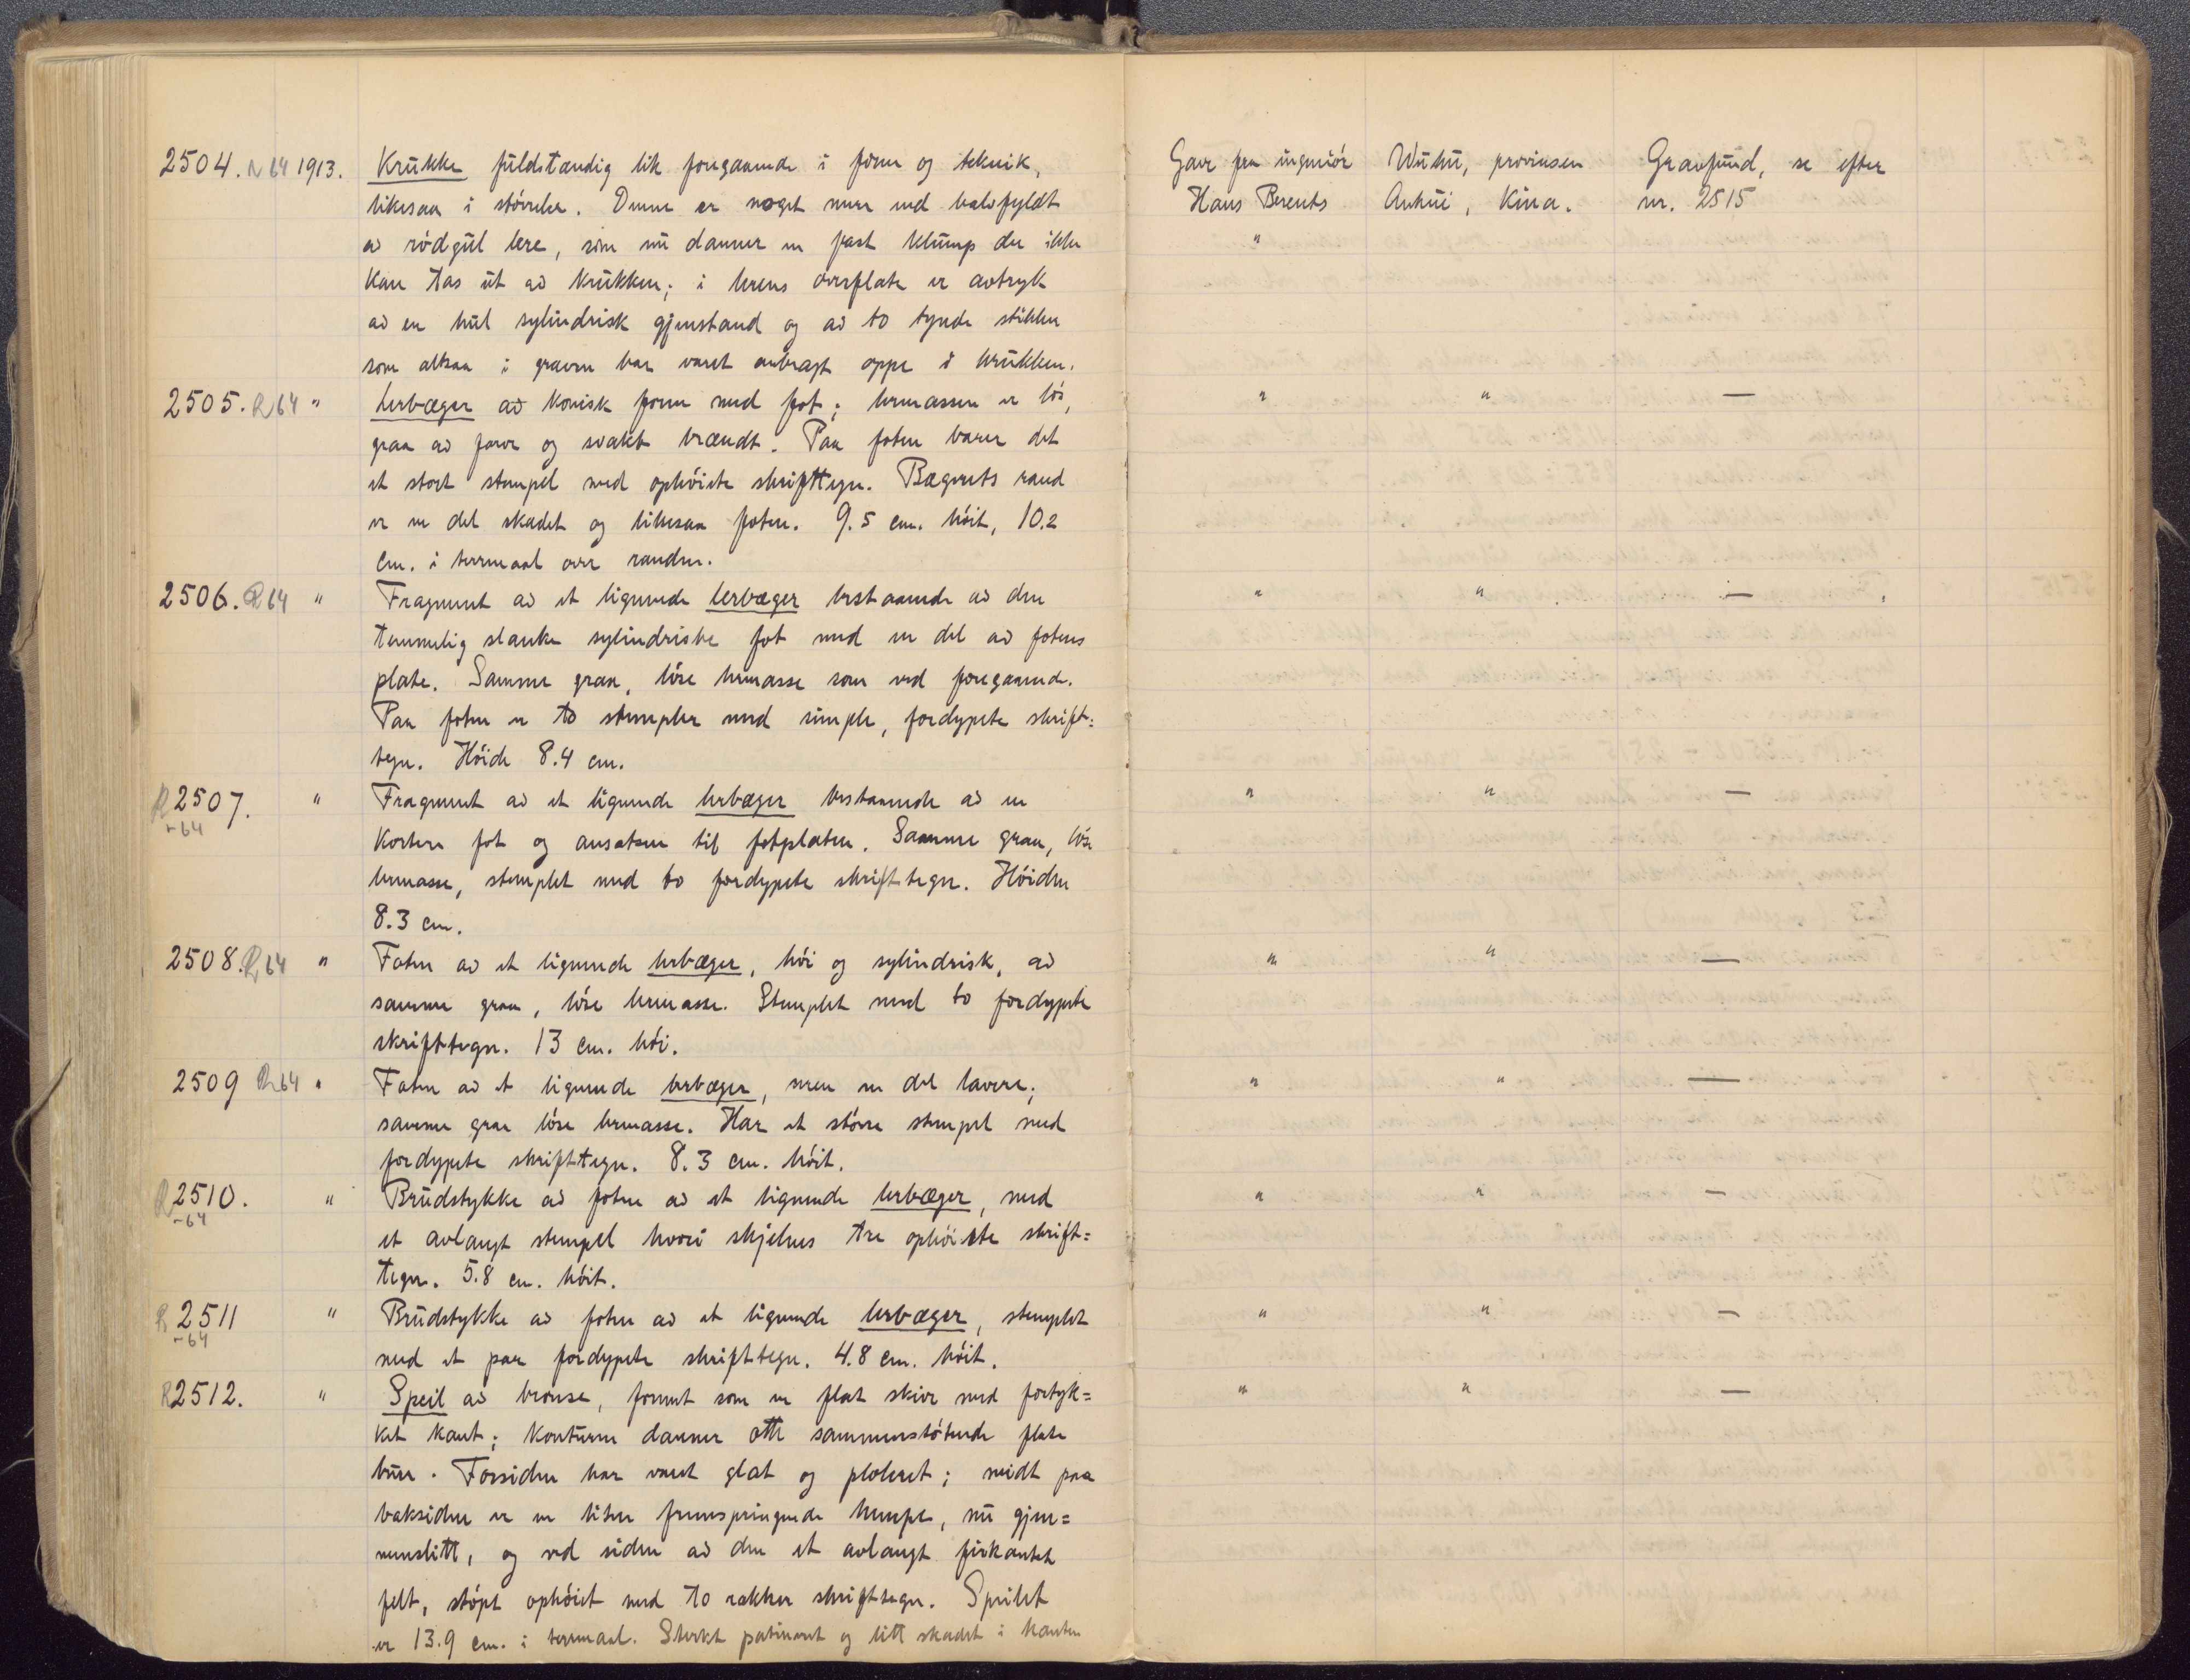 2504. R 64 1913. Krukke fuldstændig lik foregaaende i form og teknik, Gave fra ingeniör Wuhu, provinsen Gravfund, se efter
likesaa i störrelse. Denne er noget mere end halvfyldt Hans Berents Anhui, Kina. nr. 2515
av rödgul lere, som nu danner en fast klump der ikke "
kan tas ut av krukken; i lerens overflate er avtryk
av en hul sylindrisk gjenstand og av to tynde stikker
som altsaa i graven har været anbragt oppe i krukken.
2505. R 64 " Lerbæger av konisk form med fot; lermassen er lös, " " —
graa av farve og svakt brændt. Paa foten bærer det
et stort stempel med ophöiete skrifttegn. Bægerets rand
er en del skadet og likesaa foten. 9.5 cm. höit, 10.2
cm. i tvermaal over randen.
2506. R 64 " Fragment av et lignende lerbæger bestaaende av den " " —
temmelig slanke sylindriske fot med en del av fotens
plate. Samme graa, löse lermasse som ved foregaaende.
Paa foten er to stempler med simple, fordypete skrift=
tegn. Höide 8.4 cm.
R 2507. " Fragment av et lignende lerbæger bestaaende av en " " —
-64
kortere fot og ansatsen til fotplaten. Samme graa, löse
lermasse, stemplet med to fordypete skrifttegn. Höiden
8.3 cm.
2508. R 64 " Foten av et lignende lerbæger, höi og sylindrisk, av " " —
samme graa, löse lermasse. Stemplet med to fordypete
skrifttegn. 13 cm. höi.
2509 R 64 " Foten av et lignende lerbæger, men en del lavere; " " —
samme graa löse lermasse. Har et större stempel med
fordypete skrifttegn. 8.3 cm. höit.
R 2510. " Brudstykke av foten av et lignende lerbæger, med " " —
-64
et avlangt stempel hvori skjelnes tre ophöiete skrift=
tegn. 5.8 cm. höit.
R 2511 " Brudstykke av foten av et lignende lerbæger, stemplet " " —
-64
med et par fordypete skrifttegn. 4.8 cm. höit.
R 2512. " Speil av bronse, formet som en flat skive med fortyk= " " —
ket kant; konturen danner otte sammenstötende flate
buer. Forsiden har været glat og poleret; midt paa
baksiden er en liten fremspringende hempe, nu gjen=
nemslitt, og ved siden av den et avlangt firkantet
felt, stöpt ophöiet med to rækker skrifttegn. Speilet
er 13.9 cm. i tvermaal. Sterkt patineret og litt skadet i kanten